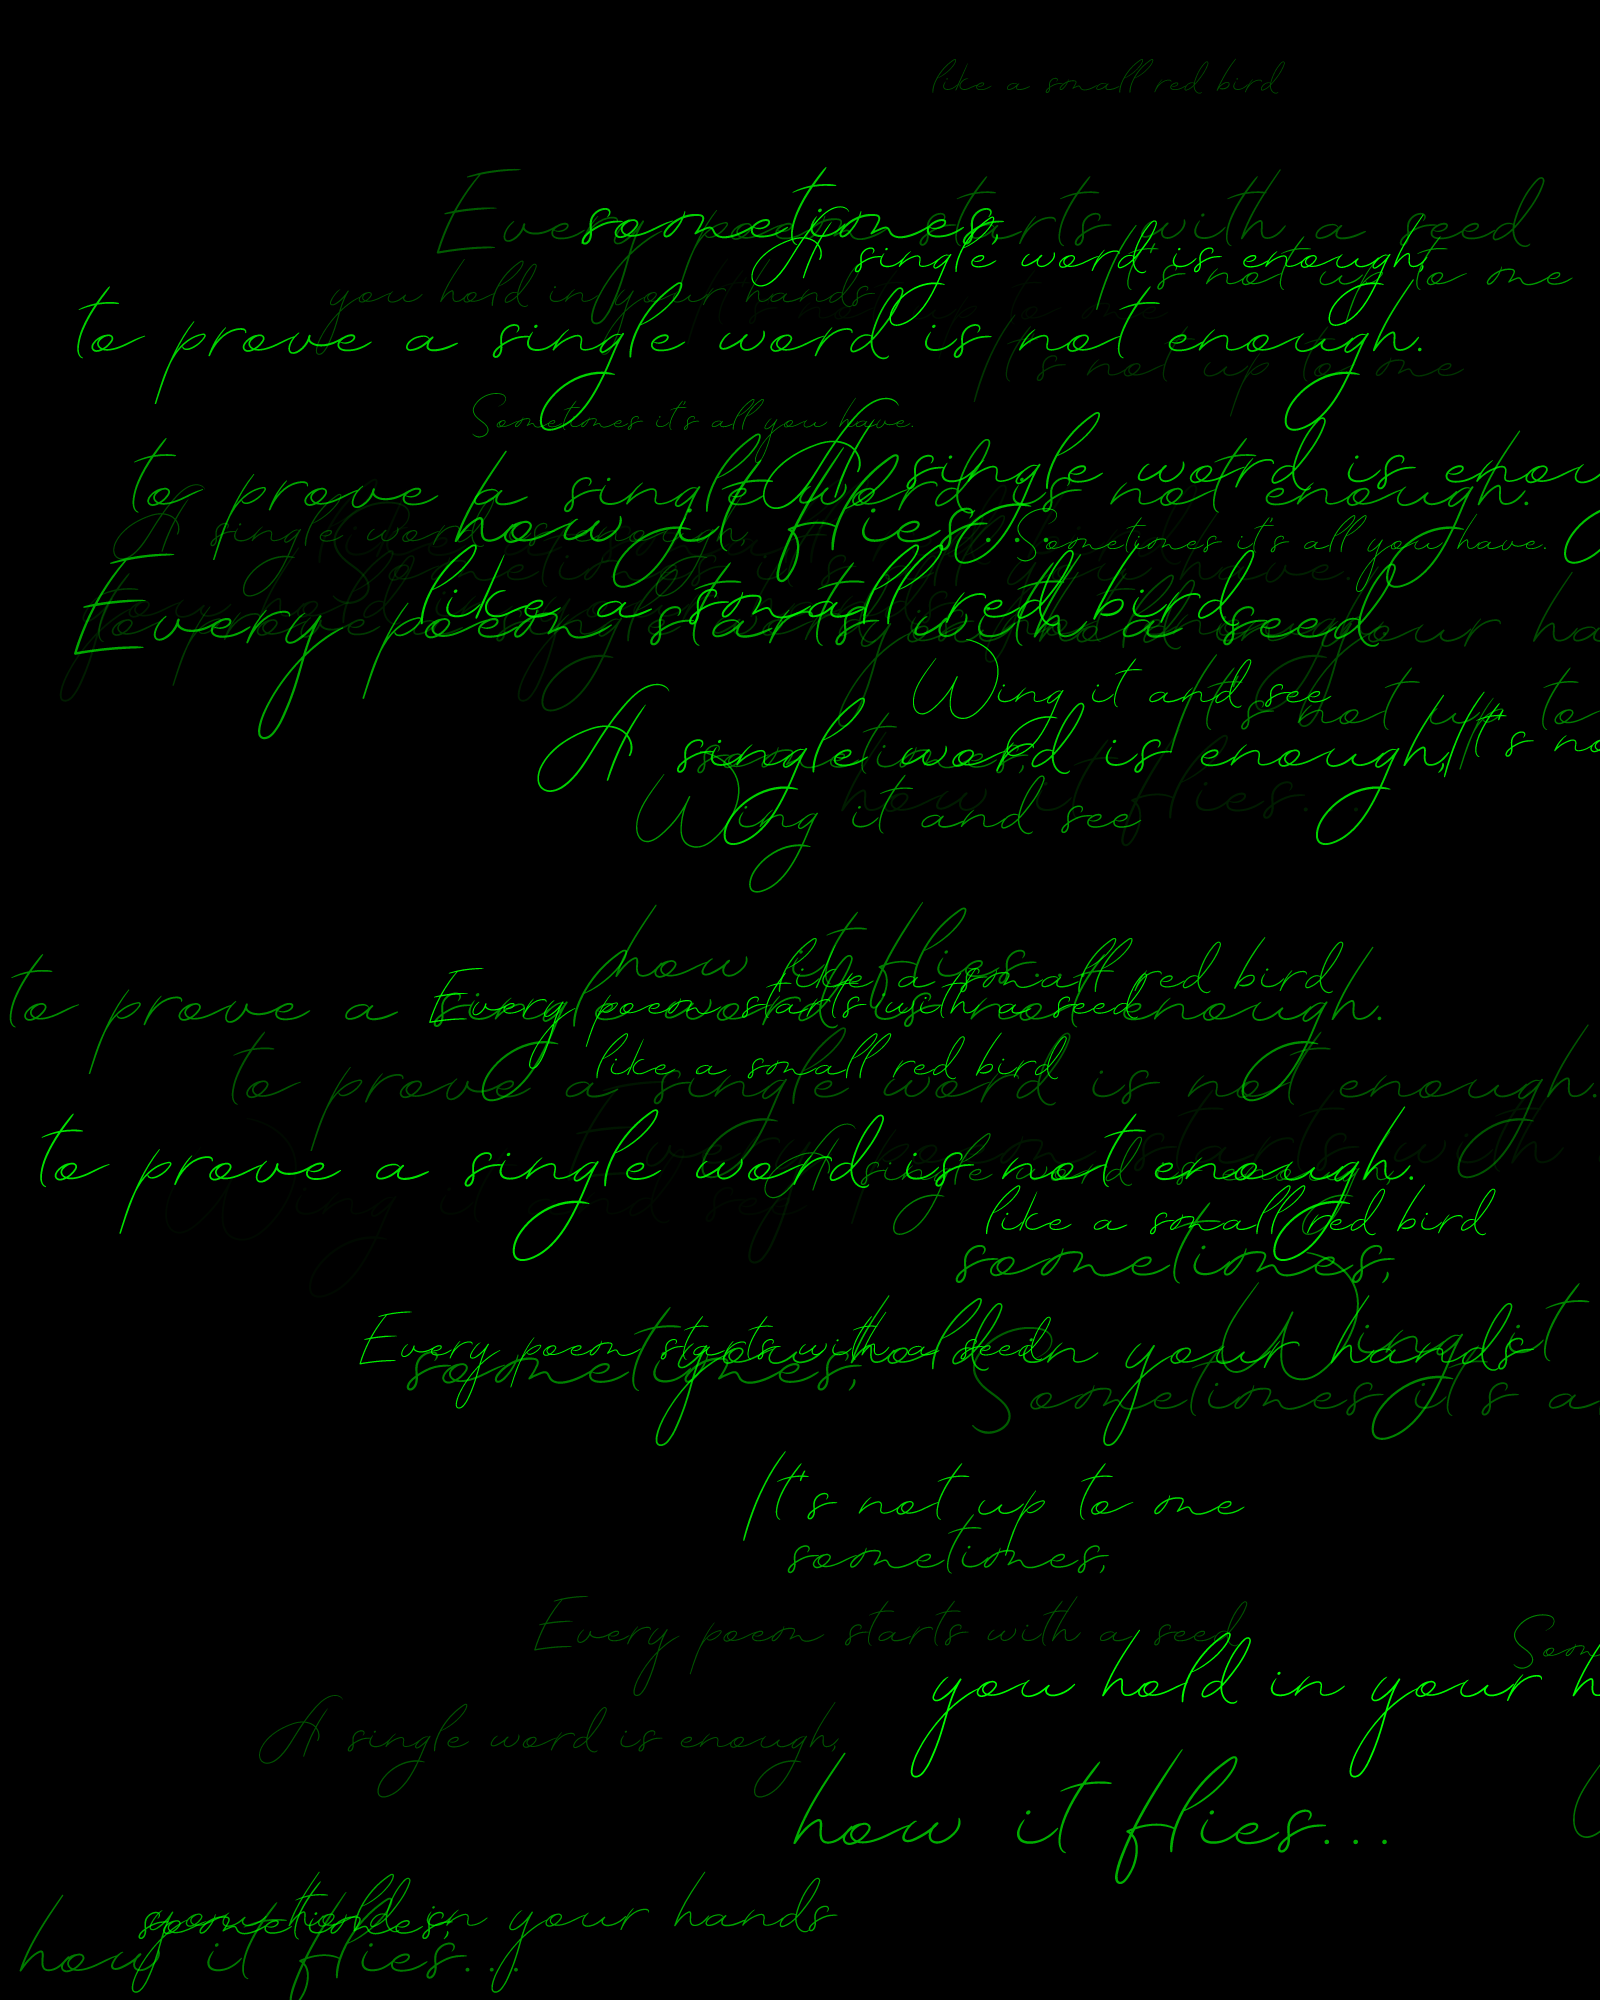 like a small red bird
Every poem starts with a seed
sometimes,
A single word is enough,
It's not up to me
you hold in your hands
It's not up to me
to prove a single word is not enough.
It's not up to me
Sometimes it's all you have.
A single word is enou
to prove a single word is not enough.
how it flies...
A single word is enough,
Sometimes it's all you have.
Sometimes it's all you have.
like a small red bird
Every poem starts with a seed
you hold in your ha
Wing it and see
It's not up to
A single word is enough,
It's no
sometimes,
how it flies...
Wing it and see
how it flies...
like a small red bird
to prove a single word is not enough.
Every poem starts with a seed
like a small red bird
to prove a single word is not enough.
Every poem starts with
to prove a single word is not enough.
A single word is enough,
Wing it and see
like a small red bird
sometimes,
Wing it
Every poem starts with a seed
you hold in your hands
sometimes,
Sometimes it's a
It's not up to me
sometimes,
Every poem starts with a seed
Som
you hold in your h
A single word is enough,
how it flies...
you hold in your hands
sometimes,
how it flies...